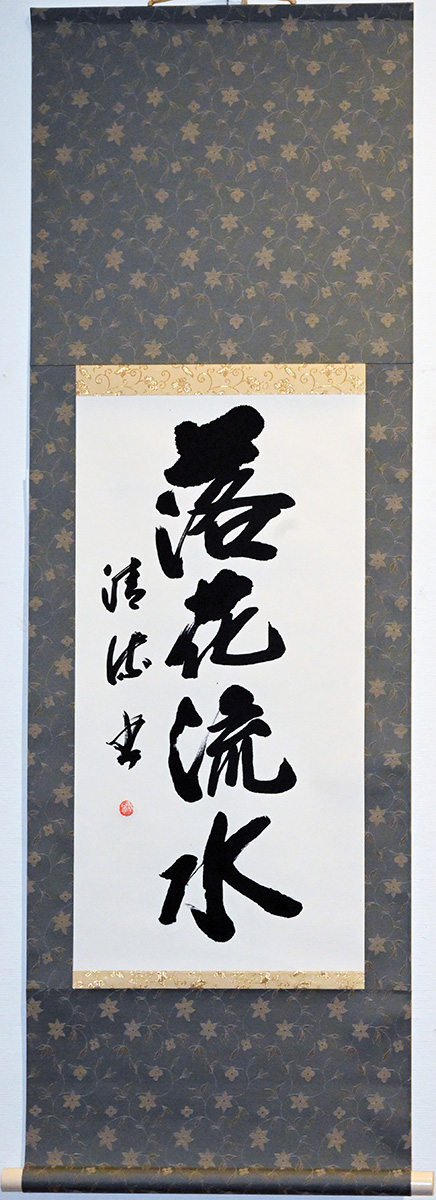 落花流水
清流書